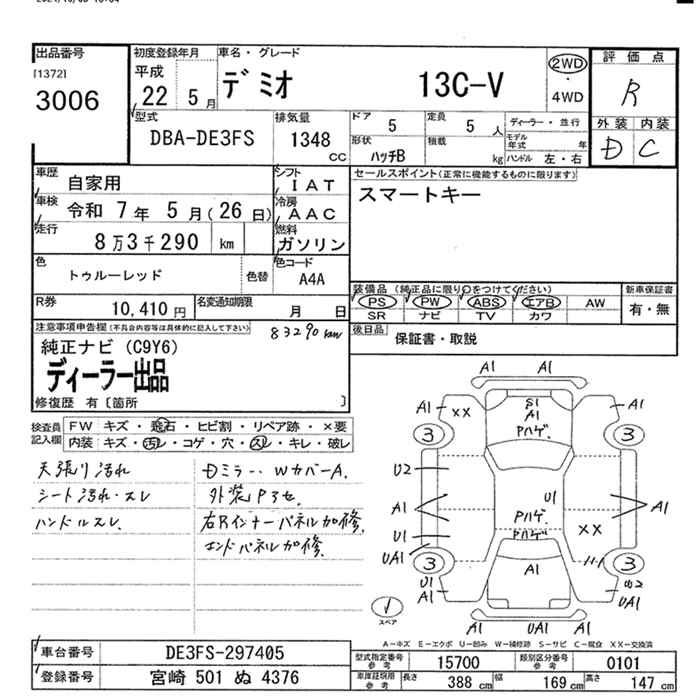 出品番号
[1372]
3006
初度登録年月
平成
22 5 月
車名・グレード
デミオ 13C-V
2WD
・
4WD
評価点
R
外装 内装
D C
型式
DBA-DE3FS
排気量
1348
CC
ドア
5
定員
5 人
形状
ハッチB
積載
kg
ディーラー・並行
モデル
年式 年
ハンドル 左・右
車歴
自家用
シフト
IAT
セールスポイント(正常に機能するものに限ります)
スマートキー
車検
令和 7 年 5 月(26 日)
冷房
AAC
走行
8 万 3 千 290 km
燃料
ガソリン
色
トゥルーレッド
色替
色コード
A4A
装備品(純正品に限り○をつけてください)
PS PW ABS エアB AW
SR ナビ TV カワ
新車保証書
有・無
R券
10,410 円
名変通知期限
月 日
後日品
保証書・取説
注意事項申告欄(不具合内容等は具体的に記入して下さい)
83290km
純正ナビ(C9Y6)
ディーラー出品
修復歴 有〔箇所 〕
検査員
記入欄
FW キズ・飛石・ヒビ割・リペア跡・×要
内装 キズ・汚レ・コゲ・穴・スレ・キレ・破レ
天張り汚れ
シート汚れ・スレ
ハンドルスレ
Dミラー・WカバーA.
外装Pヨセ
右Rインナーパネル加修.
エンドパネル加修.
A1
A1 A1
XX
S1
A1
Pハゲ
3 3
U2
A1
U1
UA1
U1
Pハゲ
Pハゲ
A1
XX
3 3
U1
A1
A1
UA1
A1 UA1 A1
スペア
A-キズ E-エクボ U-凹み W-補修跡 S-サビ C-腐食 XX-交換済
車台番号
DE3FS-297405
登録番号
宮崎 501 ぬ 4376
型式指定番号
参考
15700
類別区分番号
参考
0101
車庫証明用
参考
長さ 388 cm 幅 169 cm 高さ 147 cm